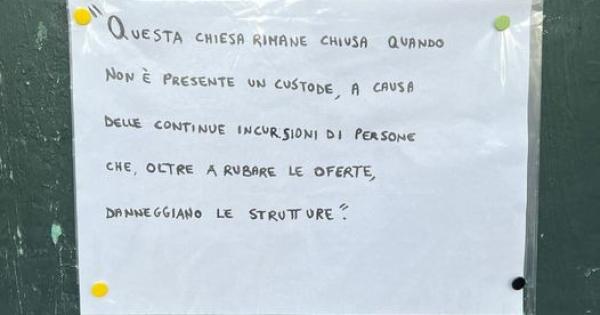 "QUESTA CHIESA RIMANE CHIUSA QUANDO
NON È PRESENTE UN CUSTODE, A CAUSA
DELLE CONTINUE INCURSIONI DI PERSONE
CHE, OLTRE A RUBARE LE OFFERTE,
DANNEGGIANO LE STRUTTURE".